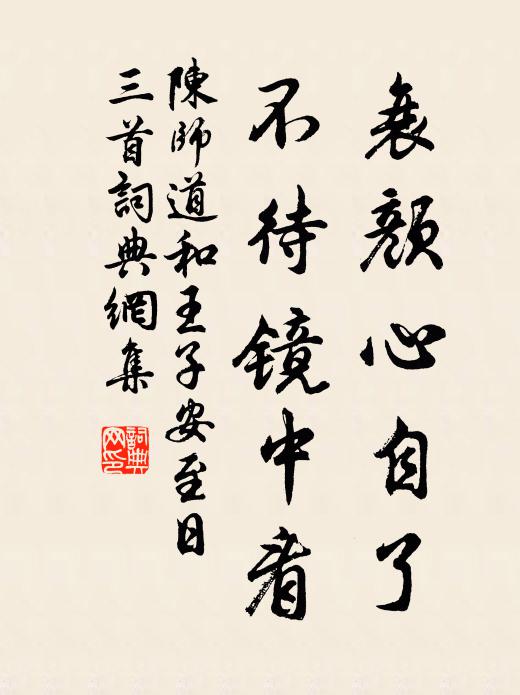 衰顏心自了
不待镜中看
陳師道和王子安至日
三首詞典網集
詞典
网印